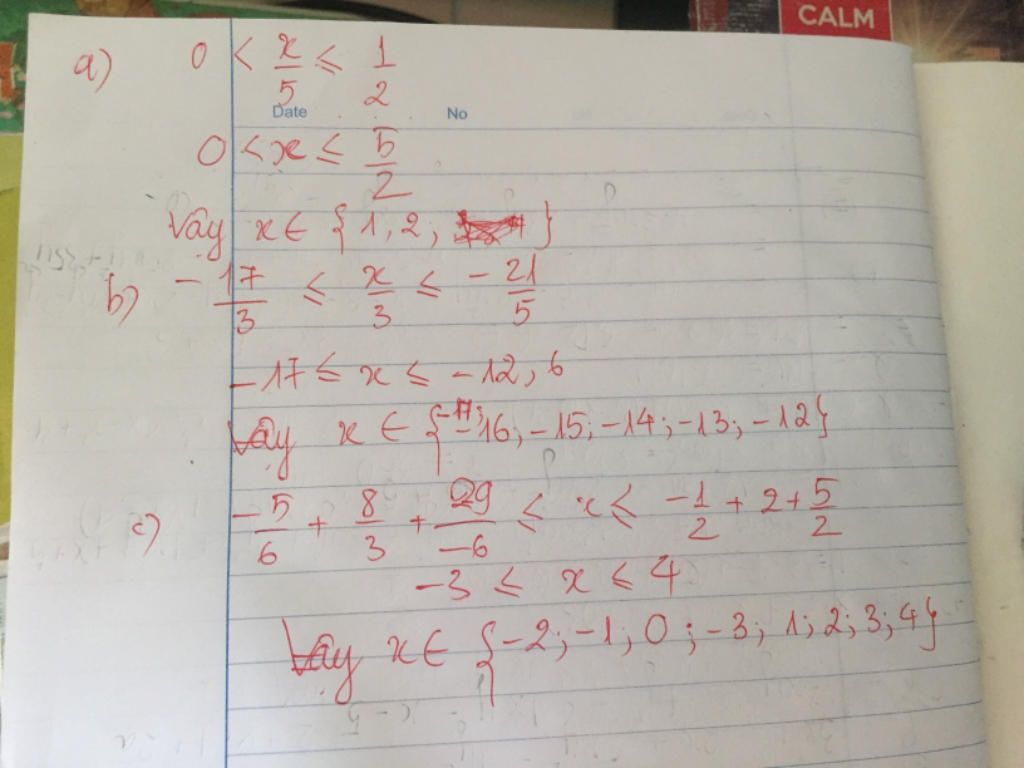 CALM
a) 0 < x/5 ≤ 1/2
Date No
0 < x ≤ 5/2
Vậy x ∈ {1, 2, }
b) -17/3 ≤ x/3 ≤ -21/5
-17 ≤ x ≤ -12,6
Vậy x ∈ {-17; -16; -15; -14; -13; -12}
c) -5/6 + 8/3 + 29/-6 ≤ x ≤ -1/2 + 2 + 5/2
-3 ≤ x ≤ 4
Vậy x ∈ {-2; -1; 0; -3; 1; 2; 3; 4}